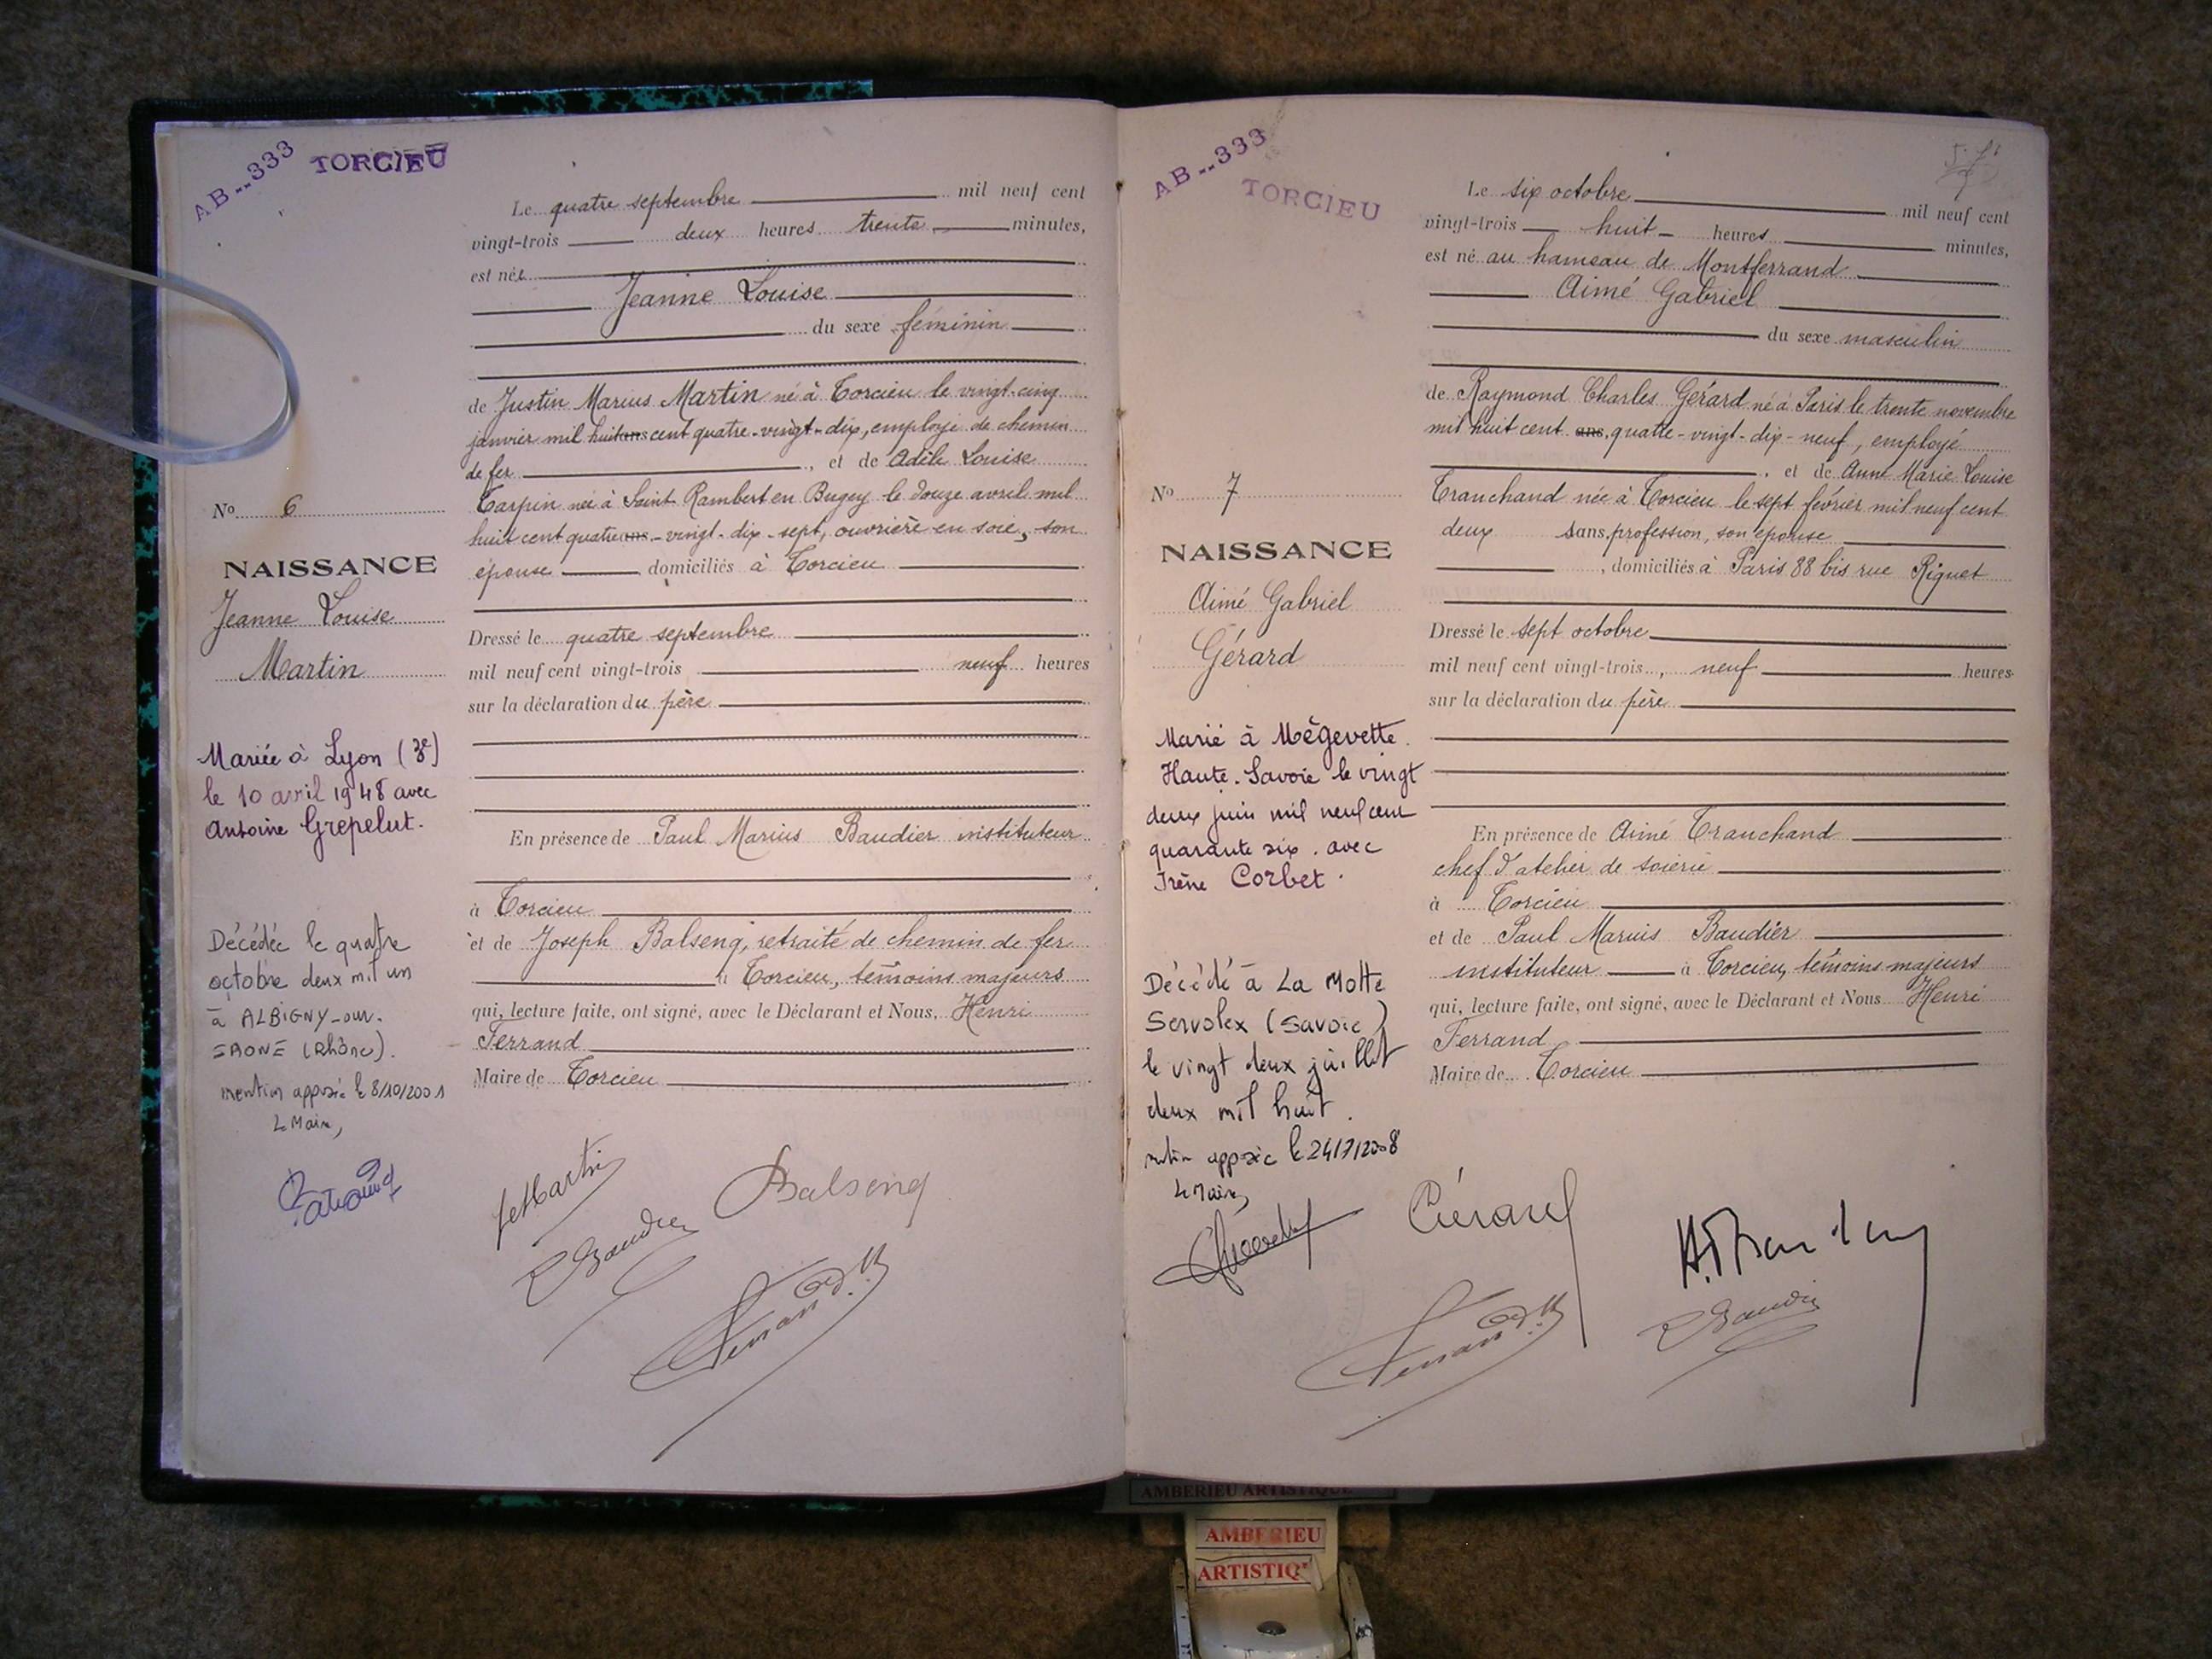 AB--333 TORCIEU
Le quatre septembre mil neuf cent
vingt-trois deux heures trente minutes,
est née
Jeanne Louise
du sexe féminin
de Justin Marius Martin né à Torcieu le vingt-cinq
janvier mil huit ans cent quatre-vingt-dix, employé de chemin
de fer, et de Adèle Louise
Tarpin née à Saint Rambert en Bugey le douze avril mil
huit cent quatre ans-vingt-dix-sept, ouvrière en soie, son
épouse domiciliés à Torcieu
Dressé le quatre septembre
mil neuf cent vingt-trois neuf heures
sur la déclaration du père
En présence de Paul Marius Baudier instituteur
à Torcieu
et de Joseph Balseng, retraité de chemin de fer
à Torcieu, témoins majeurs
qui, lecture faite, ont signé, avec le Déclarant et Nous, Henri
Ferrand
Maire de Torcieu
No 6
NAISSANCE
Jeanne Louise
Martin
Mariée à Lyon (3e)
le 10 avril 1948 avec
Antoine Grepelut.
Décédée le quatre
octobre deux mil un
à ALBIGNY-sur-
SAONE (Rhône).
mention apposée le 8/10/2001
Le Maire,
Balseng
AB--333
TORCIEU
Le six octobre mil neuf cent
vingt-trois huit heures minutes,
est né au hameau de Montferrand
Aimé Gabriel
du sexe masculin
de Raymond Charles Gérard né à Paris le trente novembre
mil huit cent ans, quatre-vingt-dix-neuf, employé
, et de Anne Marie Louise
Tranchand née à Torcieu le sept février mil neuf cent
deux sans profession, son épouse
, domiciliés à Paris 88 bis rue Riquet
Dressé le sept octobre
mil neuf cent vingt-trois, neuf heures
sur la déclaration du père
En présence de Aimé Tranchand
chef d'atelier de soierie
à Torcieu
et de Paul Marius Baudier
instituteur à Torcieu, témoins majeurs
qui, lecture faite, ont signé, avec le Déclarant et Nous Henri
Ferrand
Maire de Torcieu
No 7
NAISSANCE
Aimé Gabriel
Gérard
Marié à Mégevette
Haute-Savoie le vingt
deux juin mil neuf cent
quarante six. avec
Irène Corbet.
Décédé à La Motte
Servolex (Savoie)
le vingt deux juillet
deux mil huit.
mention apposée le 24/7/2008
Le Maire,
Gérard
AMBERIEU ARTISTIQUE
AMBERIEU
ARTISTIQ